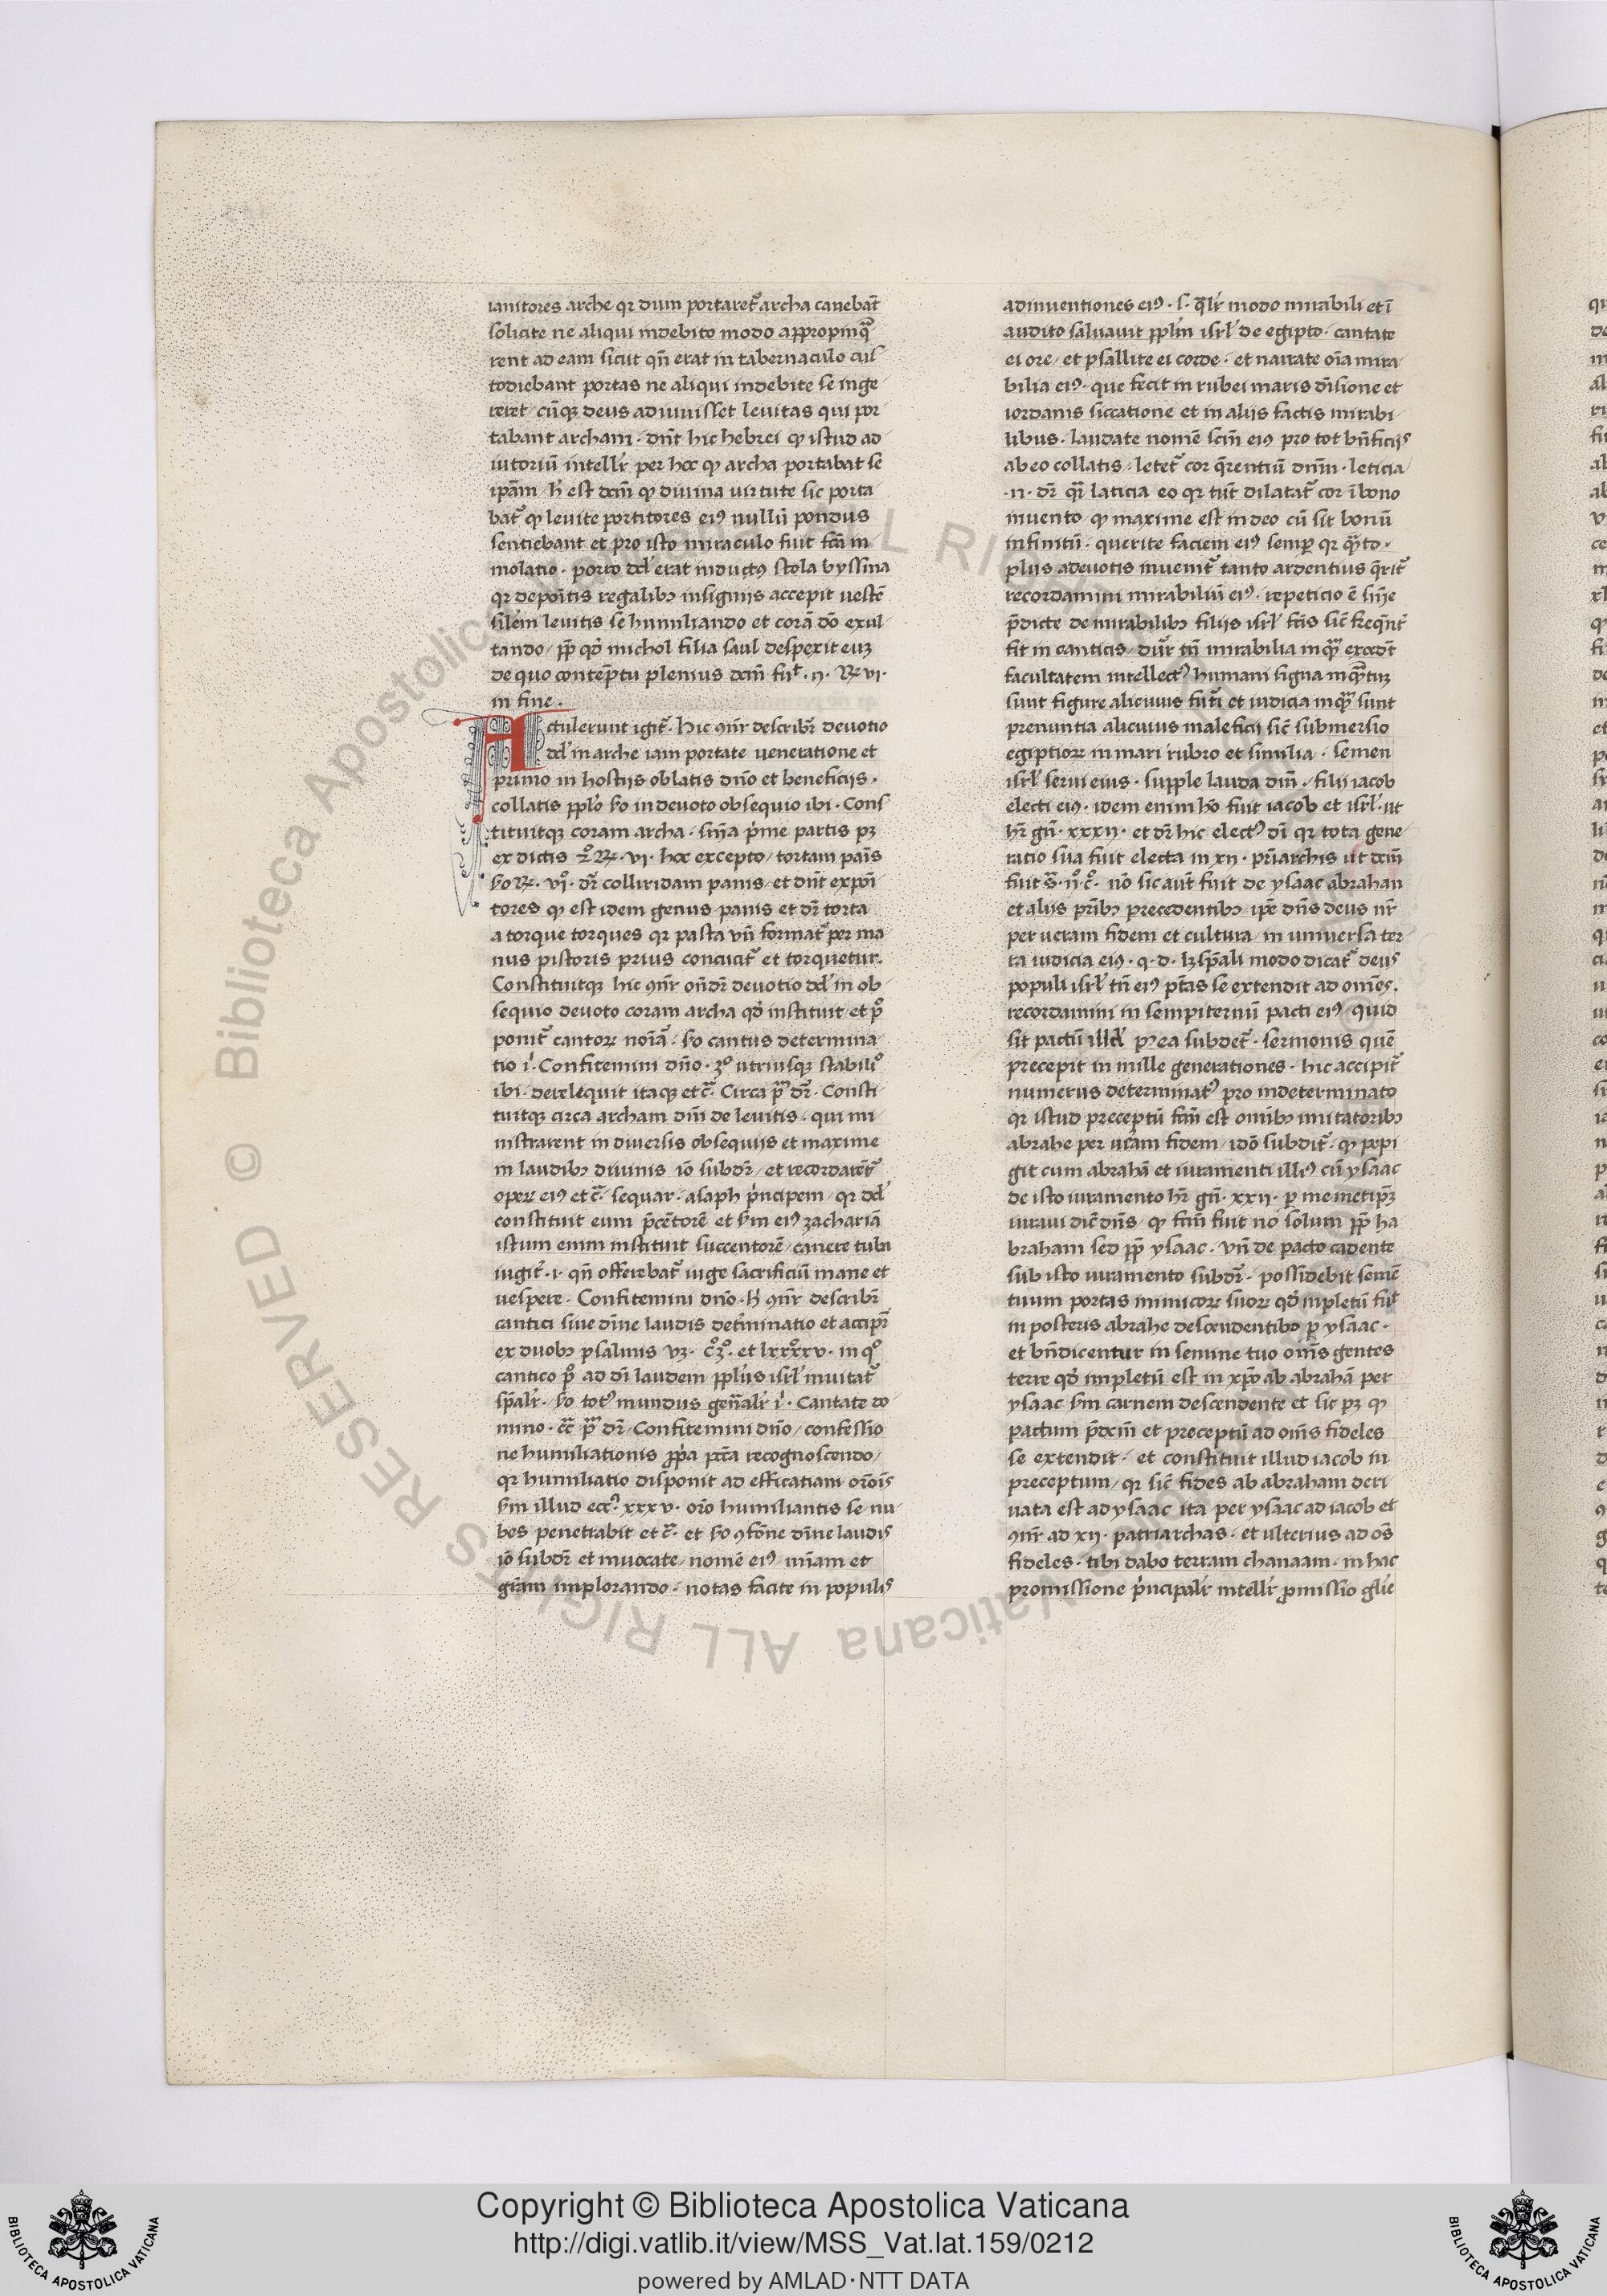 ianitores arche qr dum portaret᷑ archa canebāt
solicite ne aliqui indebito modo appropinqua
rent ad eam sicut qn̄ erat in tabernaculo cus
todiebant portas ne aliqui indebite se inge
reret / cūqꝫ deus adiuuisset leuitas qui por
tabant archam · dn̄t hic hebrei ꝙ istud ad
iutoriū intellr̄ per hoc ꝙ archa portabat se
ipam̄ · h̄ est dcm̄ ꝙ diuina uirtute sic porta
bat᷑ ꝙ leuite portitores eiꝰ nullū pondus
sentiebant et pro isto miraculo fuit fcā in
molatio · porro dd̄ erat indutꝰ stola byssina
qr depoītis regalibꝫ insignijs accepit uestē
silēm leuitis se humiliando et corā dō exul
tando / pp̄ qd̄ michol filia saul despexit euꝫ
de quo contēptu plenius dcm̄ fuit · ij · R̄ · vi ·
in fine ·
Actulerunt igit᷑ · hic 9nr̄ describr̄ deuotio
dd̄ in arche iam portate ueneratione et
primo in hostijs oblatis dn̄o et beneficijs ·
collatis pplo scd̄o in deuoto obsequio ibi · Cons
tituitqꝫ coram archa · sn̄ia p̄me partis pꝫ
ex dictis 2º R̄ · vi · hoc excepto / tortam pais̄
R̄ · viº · dr̄ colliridam panis · et dn̄t expoī
tores ꝙ est idem genus panis et dr̄ torta
a torque torques qr pasta vn̄ format᷑ per ma
nus pistoris prius concutit᷑ et torquetur ·
Constituitqꝫ hic 9nr̄ ondr̄ deuotio dd̄ in ob
sequio deuoto coram archa qd̄ instituit et pº
ponit᷑ cantorꝝ noīa · scd̄o cantus determina
tio i᷒ · Confitemini dn̄o · 3º utriusqꝫ stabilio
ibi · dereliquit itaqꝫ et c̄ · Circa pm̄ dr̄ · Consti
tuitqꝫ circa archam dn̄i de leuitis · qui mi
nistrarent in diuersis obsequijs et maxime
in laudibꝫ diuinis iō subdr̄ / et recordarēt᷑
operꝝ eiꝰ et c̄ · sequar · asaph p̄ncipem / qr dd̄
constituit eum p̄cētorē et scd̄m eiꝰ zachariā
istum enim instituit succentorē / canere tuba
iugit᷑ · i · qn̄ offerebat᷑ iuge sacrificiū mane et
uespere · Confitemini dn̄o · h̄ 9nr̄ describr̄
cantici siue diuine laudis det̄minatio et accipr̄
ex duobꝫ psalmis vꝫ · cº3º · et lxxxxv · in qº
cantico pº ad di laudem pplus isrl̄ inuitat᷑
spālr̄ · scd̄o totꝰ mundus gen̄alr̄ i᷒ · Cantate do
mino · cc̄ pm̄ dr̄ / Confitemini dn̄o / confessio
ne humiliationis ppa pctā recognoscendo /
qr humiliatio disponit ad efficatiam orōis
scd̄m illud eccꝰ · xxxv · orō humiliantis se nu
bes penetrabit et c̄ · et scd̄o 9fōne diuine laudis
iō subdr̄ et inuocate / nomē eiꝰ / mīam et
grām implorando · notas facite in populis
adinuentiones eiꝰ · s · qlr̄ modo mirabili et ī
audito saluauit pplm̄ isrl̄ de egipto · cantate
ei ore / et psallite ei corde · et narrate oīa mira
bilia eiꝰ · que fecit in rubei maris diuisione et
iordanis siccatione et in alijs factis mirabi
libus · laudate nomē scm̄ eiꝰ pro tot bn̄ficijs
ab eo collatis · letet᷑ cor q̄rentiū dnm̄ · leticia
· n · dr̄ qr̄ laticia eo qr tūc dilatat᷑ cor ī bono
inuento ꝙ maxime est in deo cū sit bonū
infinitū · querite faciem eiꝰ semp qr qnto ·
plus adeuotis inuenit᷑ tanto ardentius q̄rit᷑
recordamini mirabiliū eiꝰ · repeticio ē sn̄ie
p̄dicte de mirabilibꝫ filijs isrl̄ fcīs sic̄ freqn̄t᷑
fit in canticis / dnr̄ tn̄ mirabilia inqn̄tū excedūt
facultatem intellectꝰ humani signa inqn̄tuꝫ
sunt figure alicuius futuri et iudicia inqn̄tū sunt
prenuntia alicuius maleficij sic̄ submersio
egiptiorꝝ in mari rubro et similia · Semen
isrl̄ serui eius · supple lauda dnm̄ · filij iacob
electi eiꝰ · idem enim hō fuit iacob et isrl̄ · ut
hr̄ gn̄ · xxxij · et dr̄ hic electꝰ di qr tota gene
ratio sua fuit electa in xij · priarchis ut dcm̄
fuit s̄ · ijº cº · nō sic aut̄ fuit de ysaac abrahan
et alijs prībꝫ precedentibꝫ ipe dn̄s deus nr̄
per ueram fidem et cultura / in uniuersa ter
ra iudicia eiꝰ · q · d · lꝫ spāli modo dicat᷑ deus
populi isrl̄ tn̄ eiꝰ ptās se extendit ad omēs ·
recordamini in sempiternū pacti eiꝰ / quid
sit pactū illd̄ p9ea subdet᷑ · sermonis quē
precepit in mille generationes · hic accipit᷑
numerus determinatꝰ pro indeterminato
qr istud preceptū fcm̄ est omībꝫ imitatoribꝫ
abrahe per ueram fidem / idō subdit᷑ · ꝙ pepi
git cum abrahā et iuramenti illiꝰ cū ysaac
de isto iuramento hr̄ gn̄ · xxij · p me metipꝫ
iuraui dic̄ dn̄s / ꝙ fcm̄ fuit nō solum pp̄ ha
braham sed pp̄ ysaac · vn̄ de pacto cadente
sub isto iuramento subdr̄ · possidebit semē
tuum portas inimicorꝝ suorꝝ qd̄ inpletū fuit
in posteris abrahe descendentibꝫ p ysaac ·
et bn̄dicentur in semine tuo omīs gentes
terre qd̄ impletū est in xpo ab abrahā per
ysaac scd̄m carnem descendente et sic pꝫ ꝙ
pactum p̄dcm̄ et preceptū ad omīs fideles
se extendit · et constituit illud iacob in
preceptum / qr sic̄ fides ab abraham deri
uata est ad ysaac ita per ysaac ad iacob et
9nr̄ ad xij · patriarchas · et ulterius ad oēs
fideles · tibi dabo terram chanaam · in hac
promissione p̄ncipalr̄ intellr̄ pmissio glīe
Copyright © Biblioteca Apostolica Vaticana
http://digi.vatlib.it/view/MSS_Vat.lat.159/0212
powered by AMLAD·NTT DATA
BIBLIOTECA APOSTOLICA VATICANA
BIBLIOTECA APOSTOLICA VATICANA
© Biblioteca Apostolica Vaticana ALL RIGHTS RESERVED